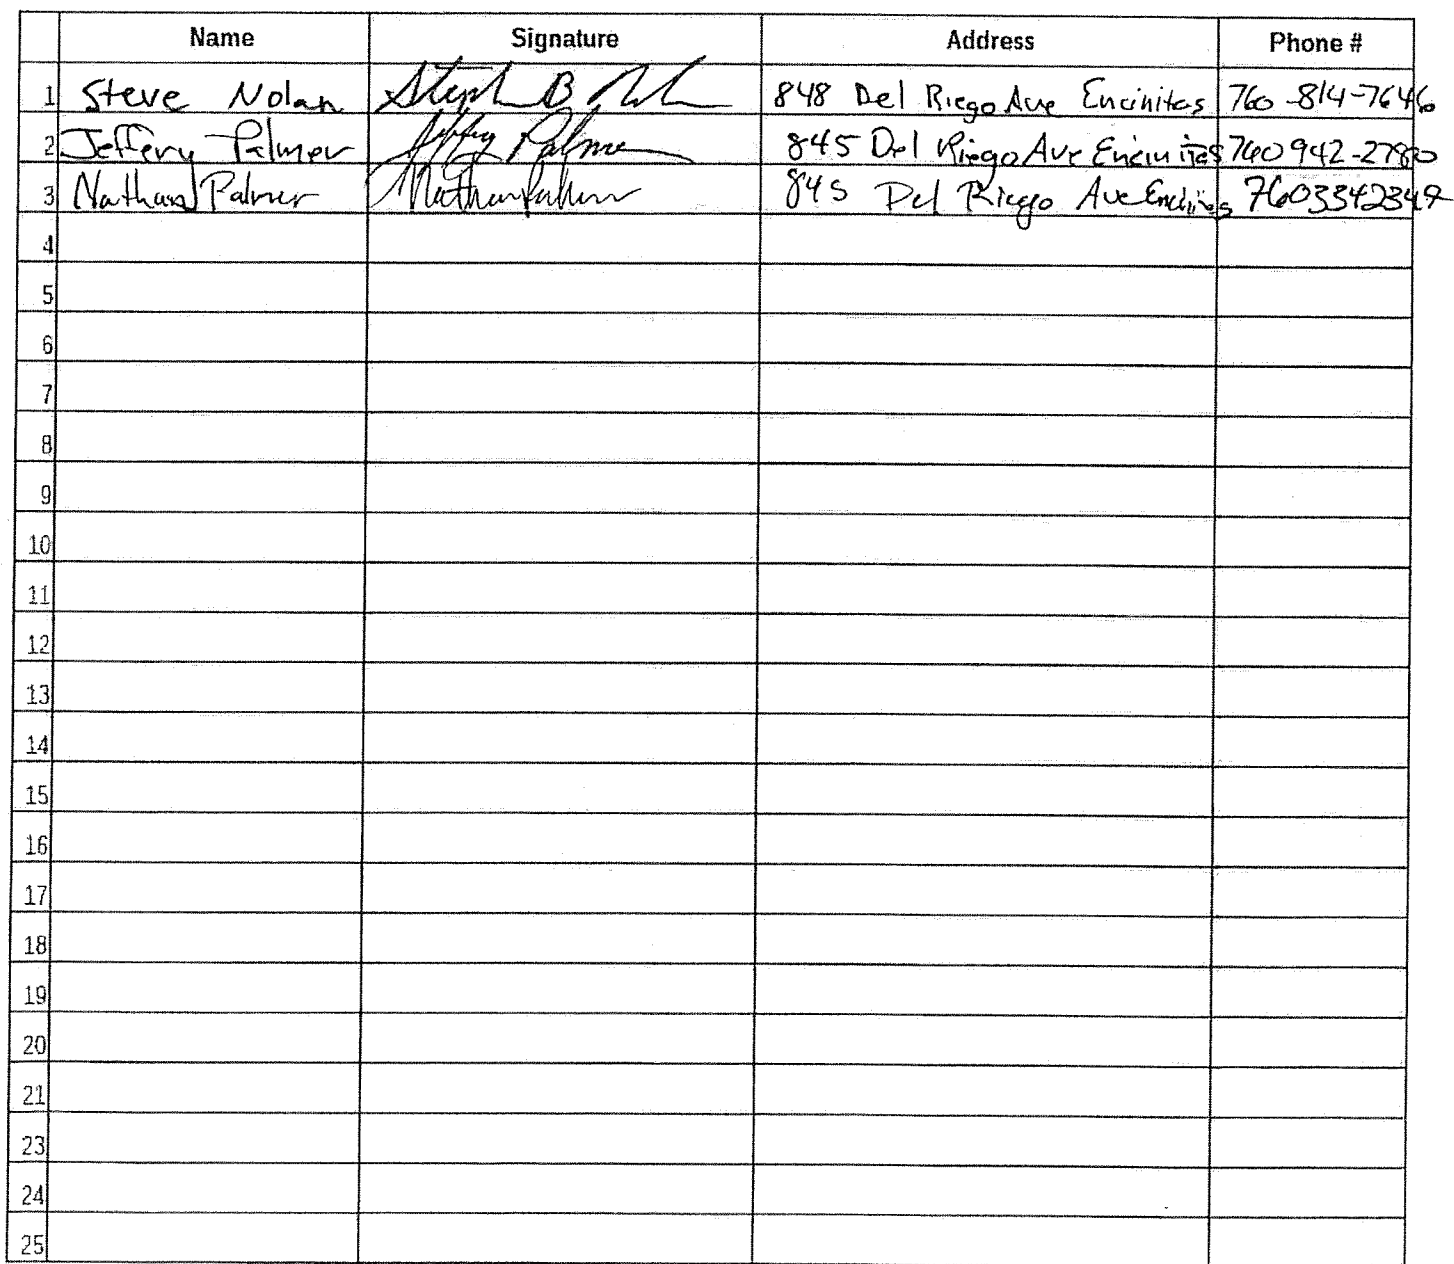 Name Signature Address Phone #
1 Steve Nolan Steph B 848 Del Riego Ave Encinitas 760-814-7646
2 Jeffery Palmer Jeffery Palmer 845 Del Riego Ave Encinitas 760 942-2780
3 Nathan Palmer Nathan Palmer 845 Del Riego Ave Encinitas 7603342349
4
5
6
7
8
9
10
11
12
13
14
15
16
17
18
19
20
21
23
24
25